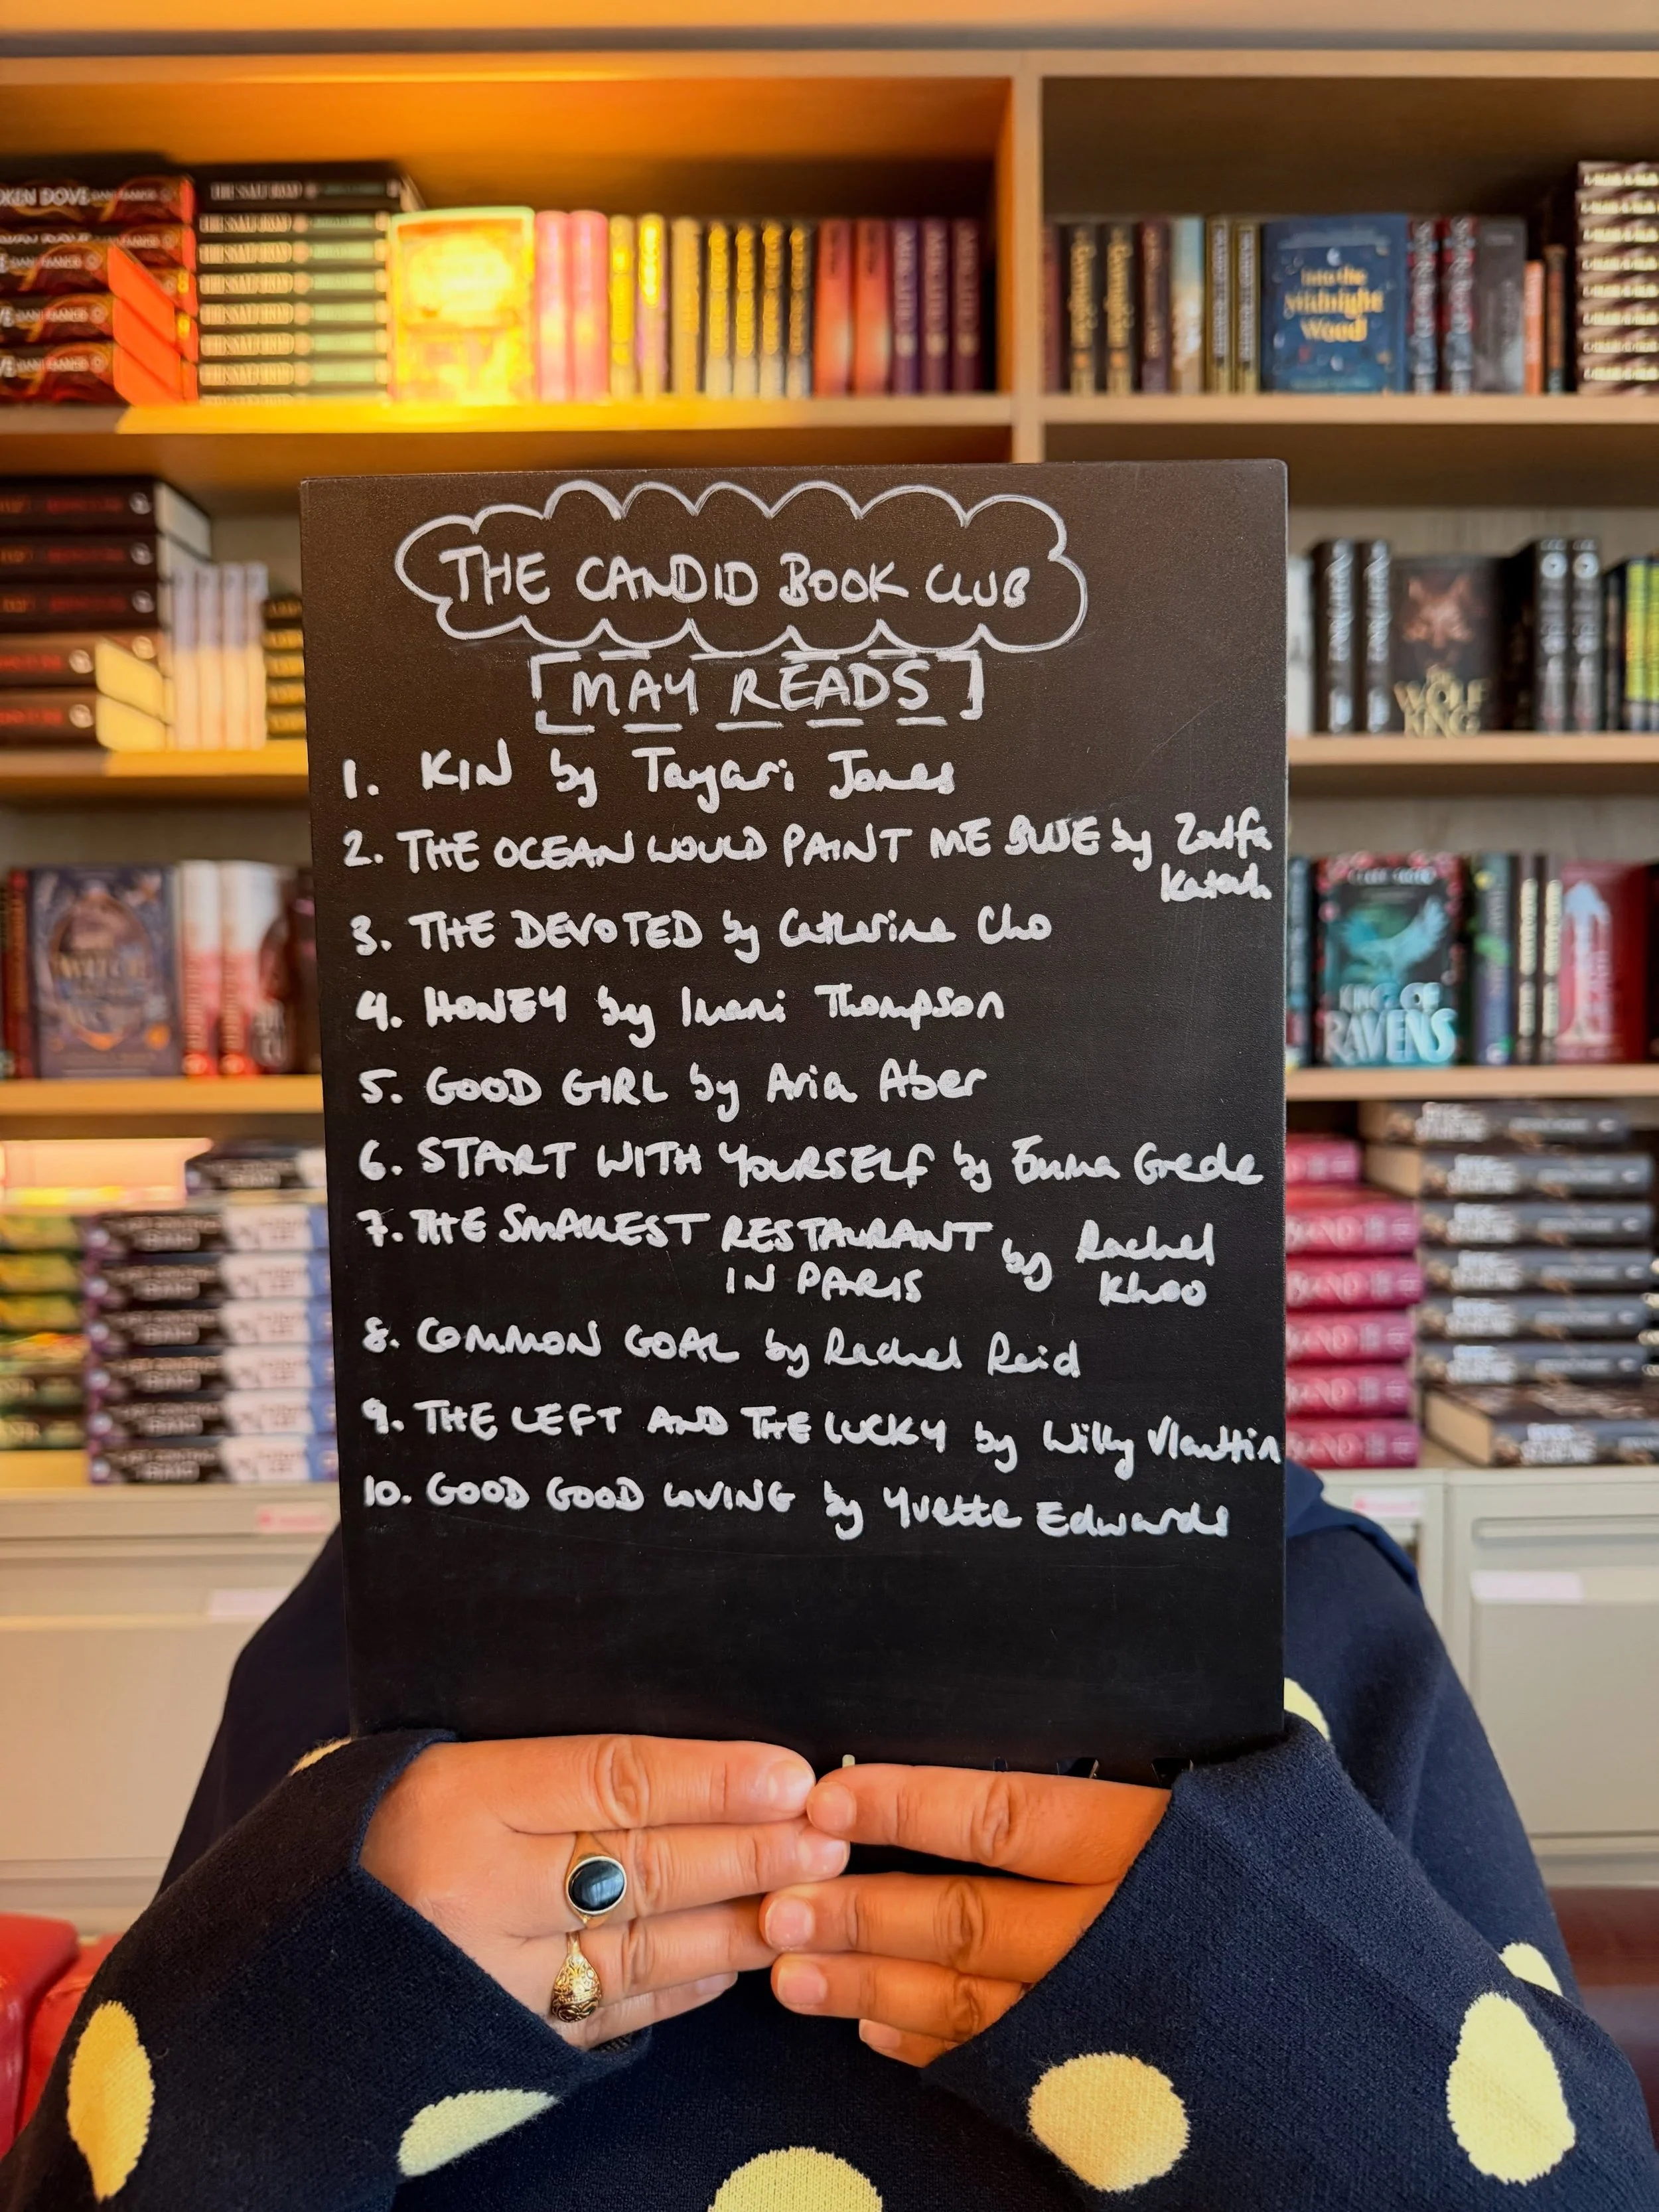 THE CANDID BOOK CLUB
[MAY READS]
1. KIN by Tayari Jones
2. THE OCEAN WOULD PAINT ME BLUE by Zoulfa
Katouh
3. THE DEVOTED by Catherine Cho
4. HONEY by Imani Thompson
5. GOOD GIRL by Aria Aber
6. START WITH YOURSELF by Emma Grede
7. THE SMALLEST RESTAURANT by Rachel
IN PARIS Khoo
8. COMMON GOAL by Rachel Reid
9. THE LEFT AND THE LUCKY by Willy Vlautin
10. GOOD GOOD LOVING by Yvette Edwards
Into the
Midnight
Wood
THE
WOLF
KING
KING OF
RAVENS